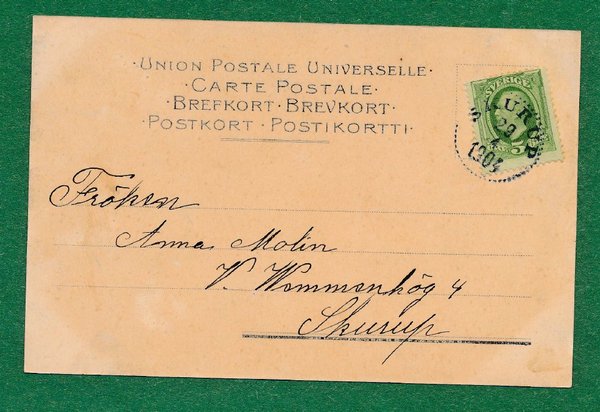 ·UNION POSTALE UNIVERSELLE·
·CARTE POSTALE·
·BREFKORT·BREVKORT·
·POSTKORT·POSTIKORTTI·
SVERIGE
5
SKURUP
29
1904
Fröken
Anna Molin
V. Wemmenhög 4
Skurup